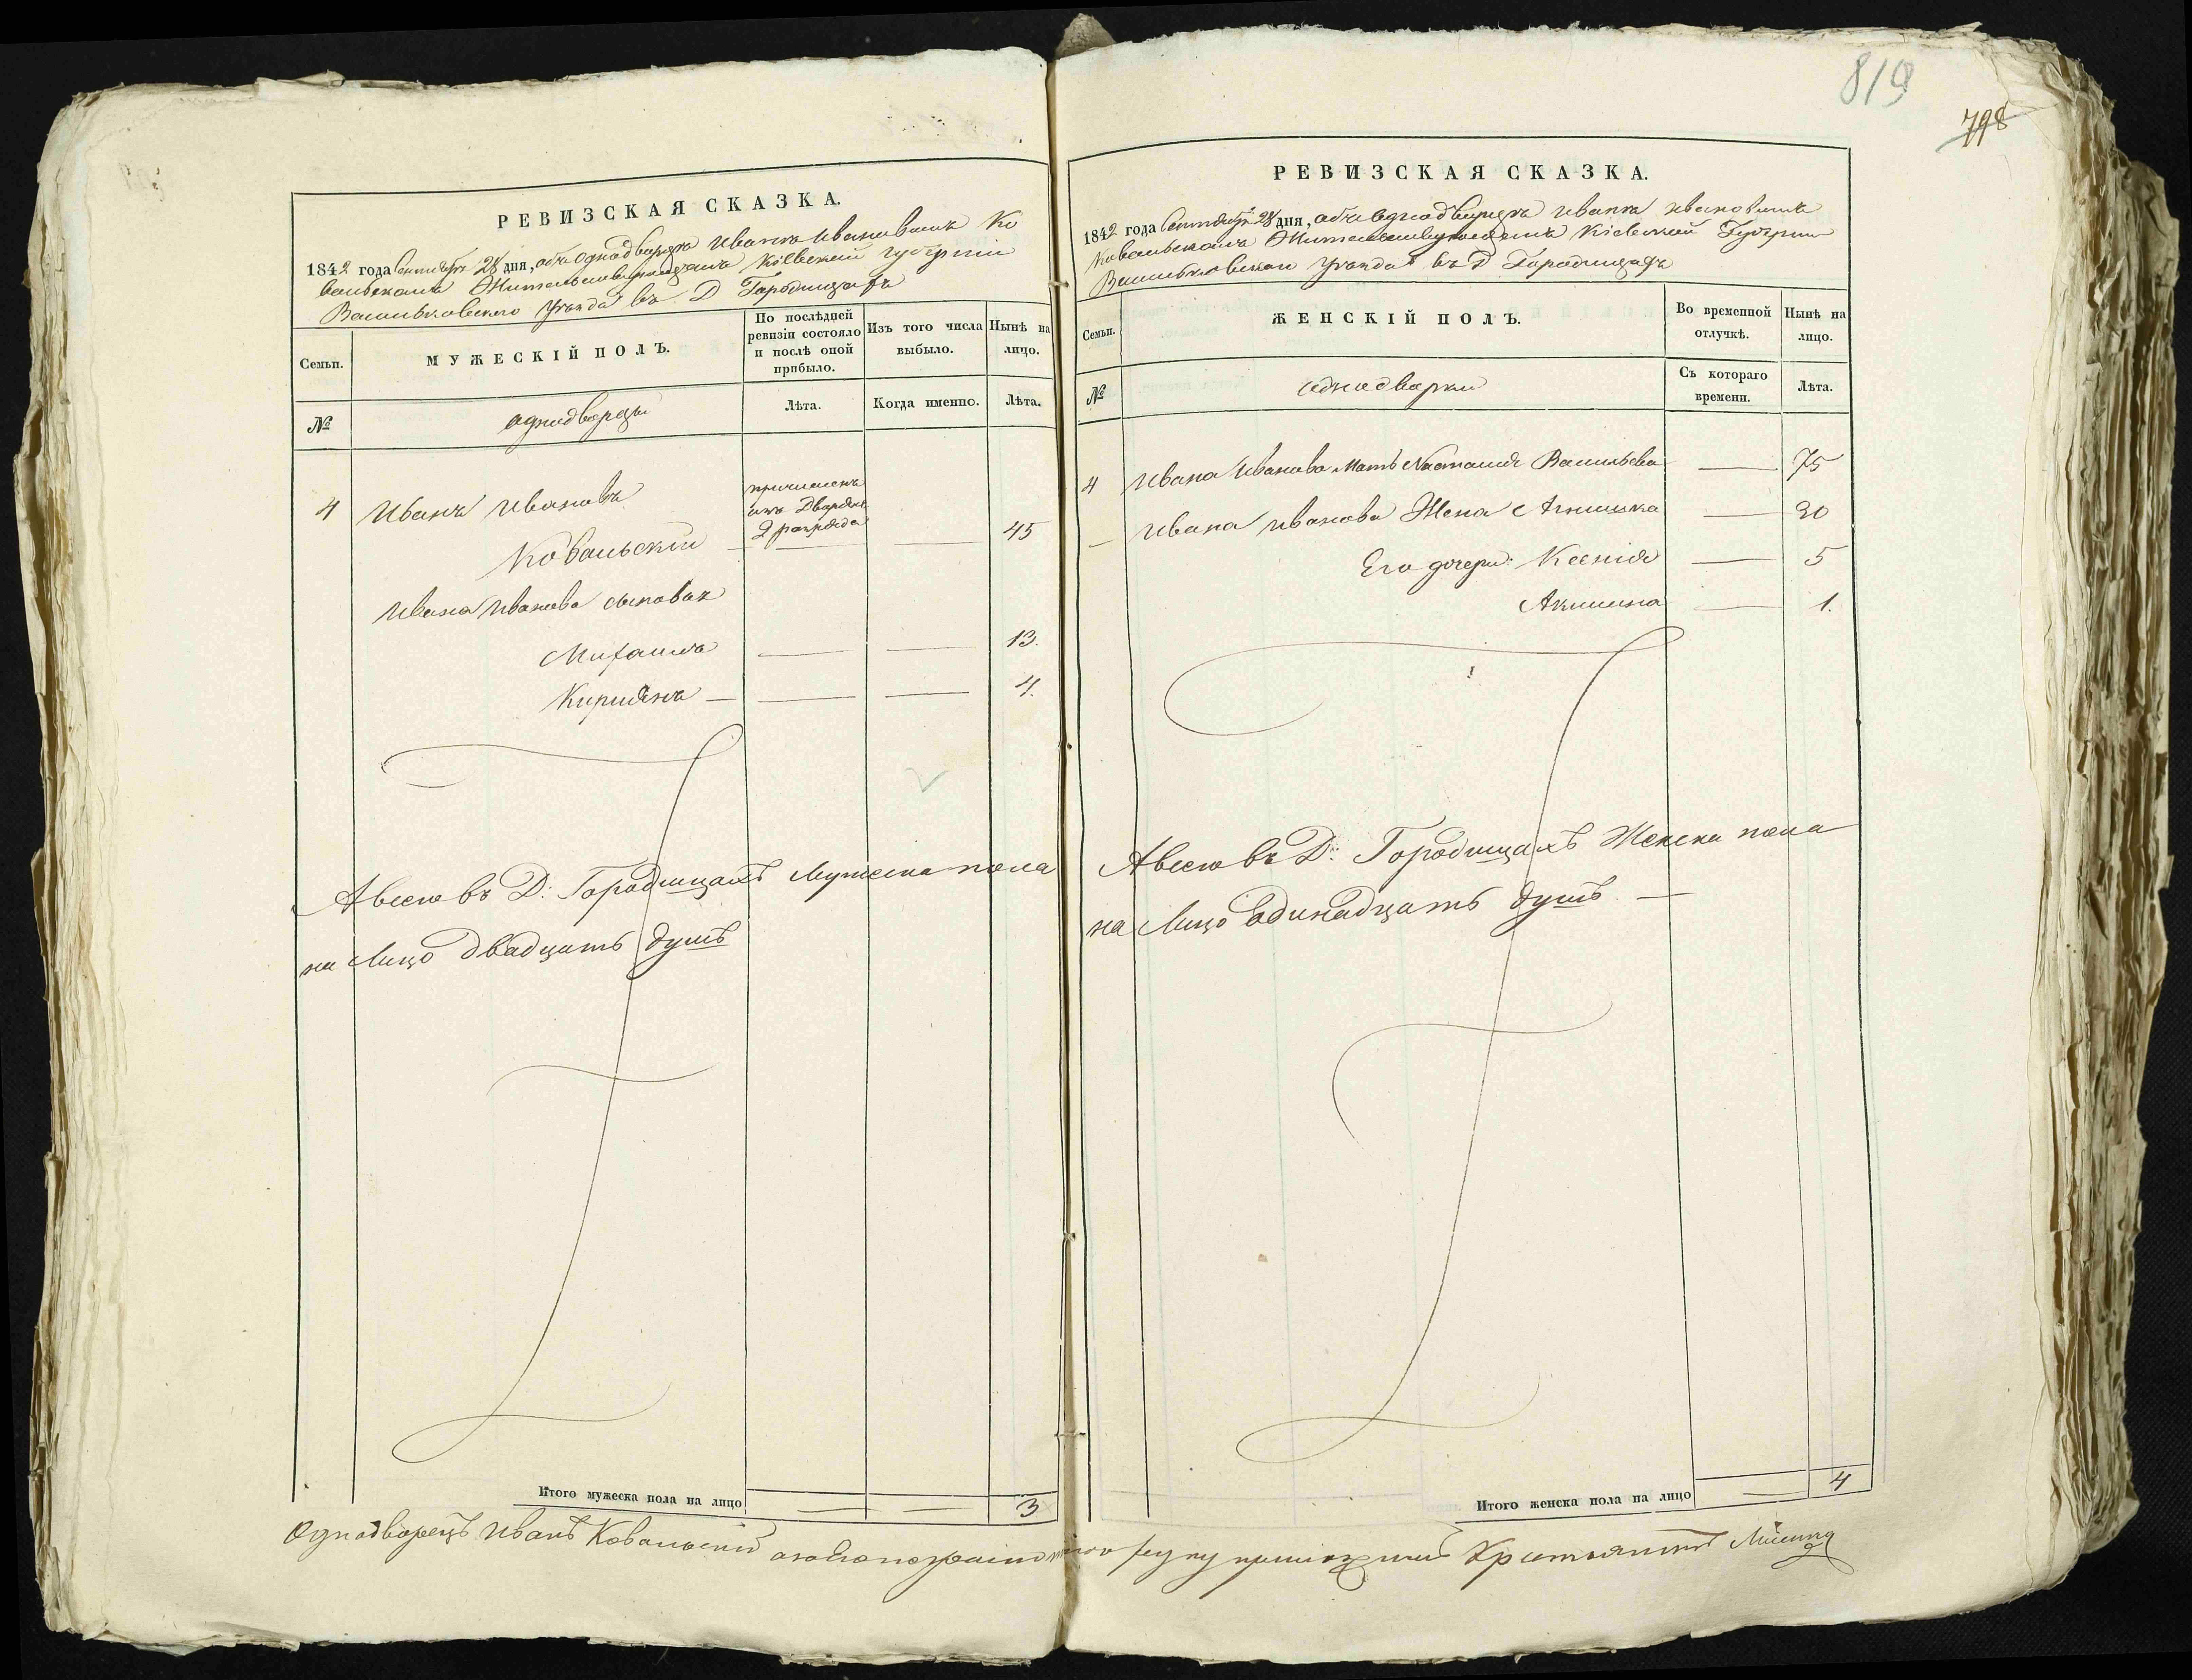 819
798
РЕВИЗСКАЯ СКАЗКА.
1842 года Сентября 28 дня, объ однодворцѣ Иванѣ Ивановичѣ Ко
вальскомъ Жительствующемъ Кіевской губерніи
Васильковского уѣзда въ Д Городищахъ
Семьи.
МУЖЕСКІЙ ПОЛЪ.
По послѣдней ревизіи состояло и послѣ оной прибыло.
Изъ того числа выбыло.
Нынѣ на лицо.
№
однодворцы
Лѣта.
Когда именно.
Лѣта.
4 Иванъ Ивановъ
причисленъ
изъ Дворянъ
2 разряда
Ковальскій — — — 45
Ивана Иванова сыновья
Михаилъ — — 13.
Киріянъ — — — 4.
А всего въ Д: Городищахъ Мужеска пола
на Лицо двадцать душъ
Итого мужеска пола на лицо — — 3
РЕВИЗСКАЯ СКАЗКА.
1842 года Сентября 28 дня, объ однодворцѣ Иванѣ Ивановичѣ
Ковальскомъ Жительствующемъ Кіевской Губерніи
Васильковской уѣзда въ Д Городищахъ
Семьи.
ЖЕНСКІЙ ПОЛЪ.
Во временной отлучкѣ.
Нынѣ на лицо.
№
однодворки
Съ котораго времени.
Лѣта.
4 Ивана Иванова Мать Настасия Васильева — 75
— Ивана Иванова Жена Аннушка — 30
Его дочери: Ксенія — 5
Акилина — 1.
А всего въ Д: Городищахъ Женска пола
на Лицо одинадцать душъ. —
Итого женска пола на лицо — 4
Однодворецъ Иванъ Ковальский руку приложилъ